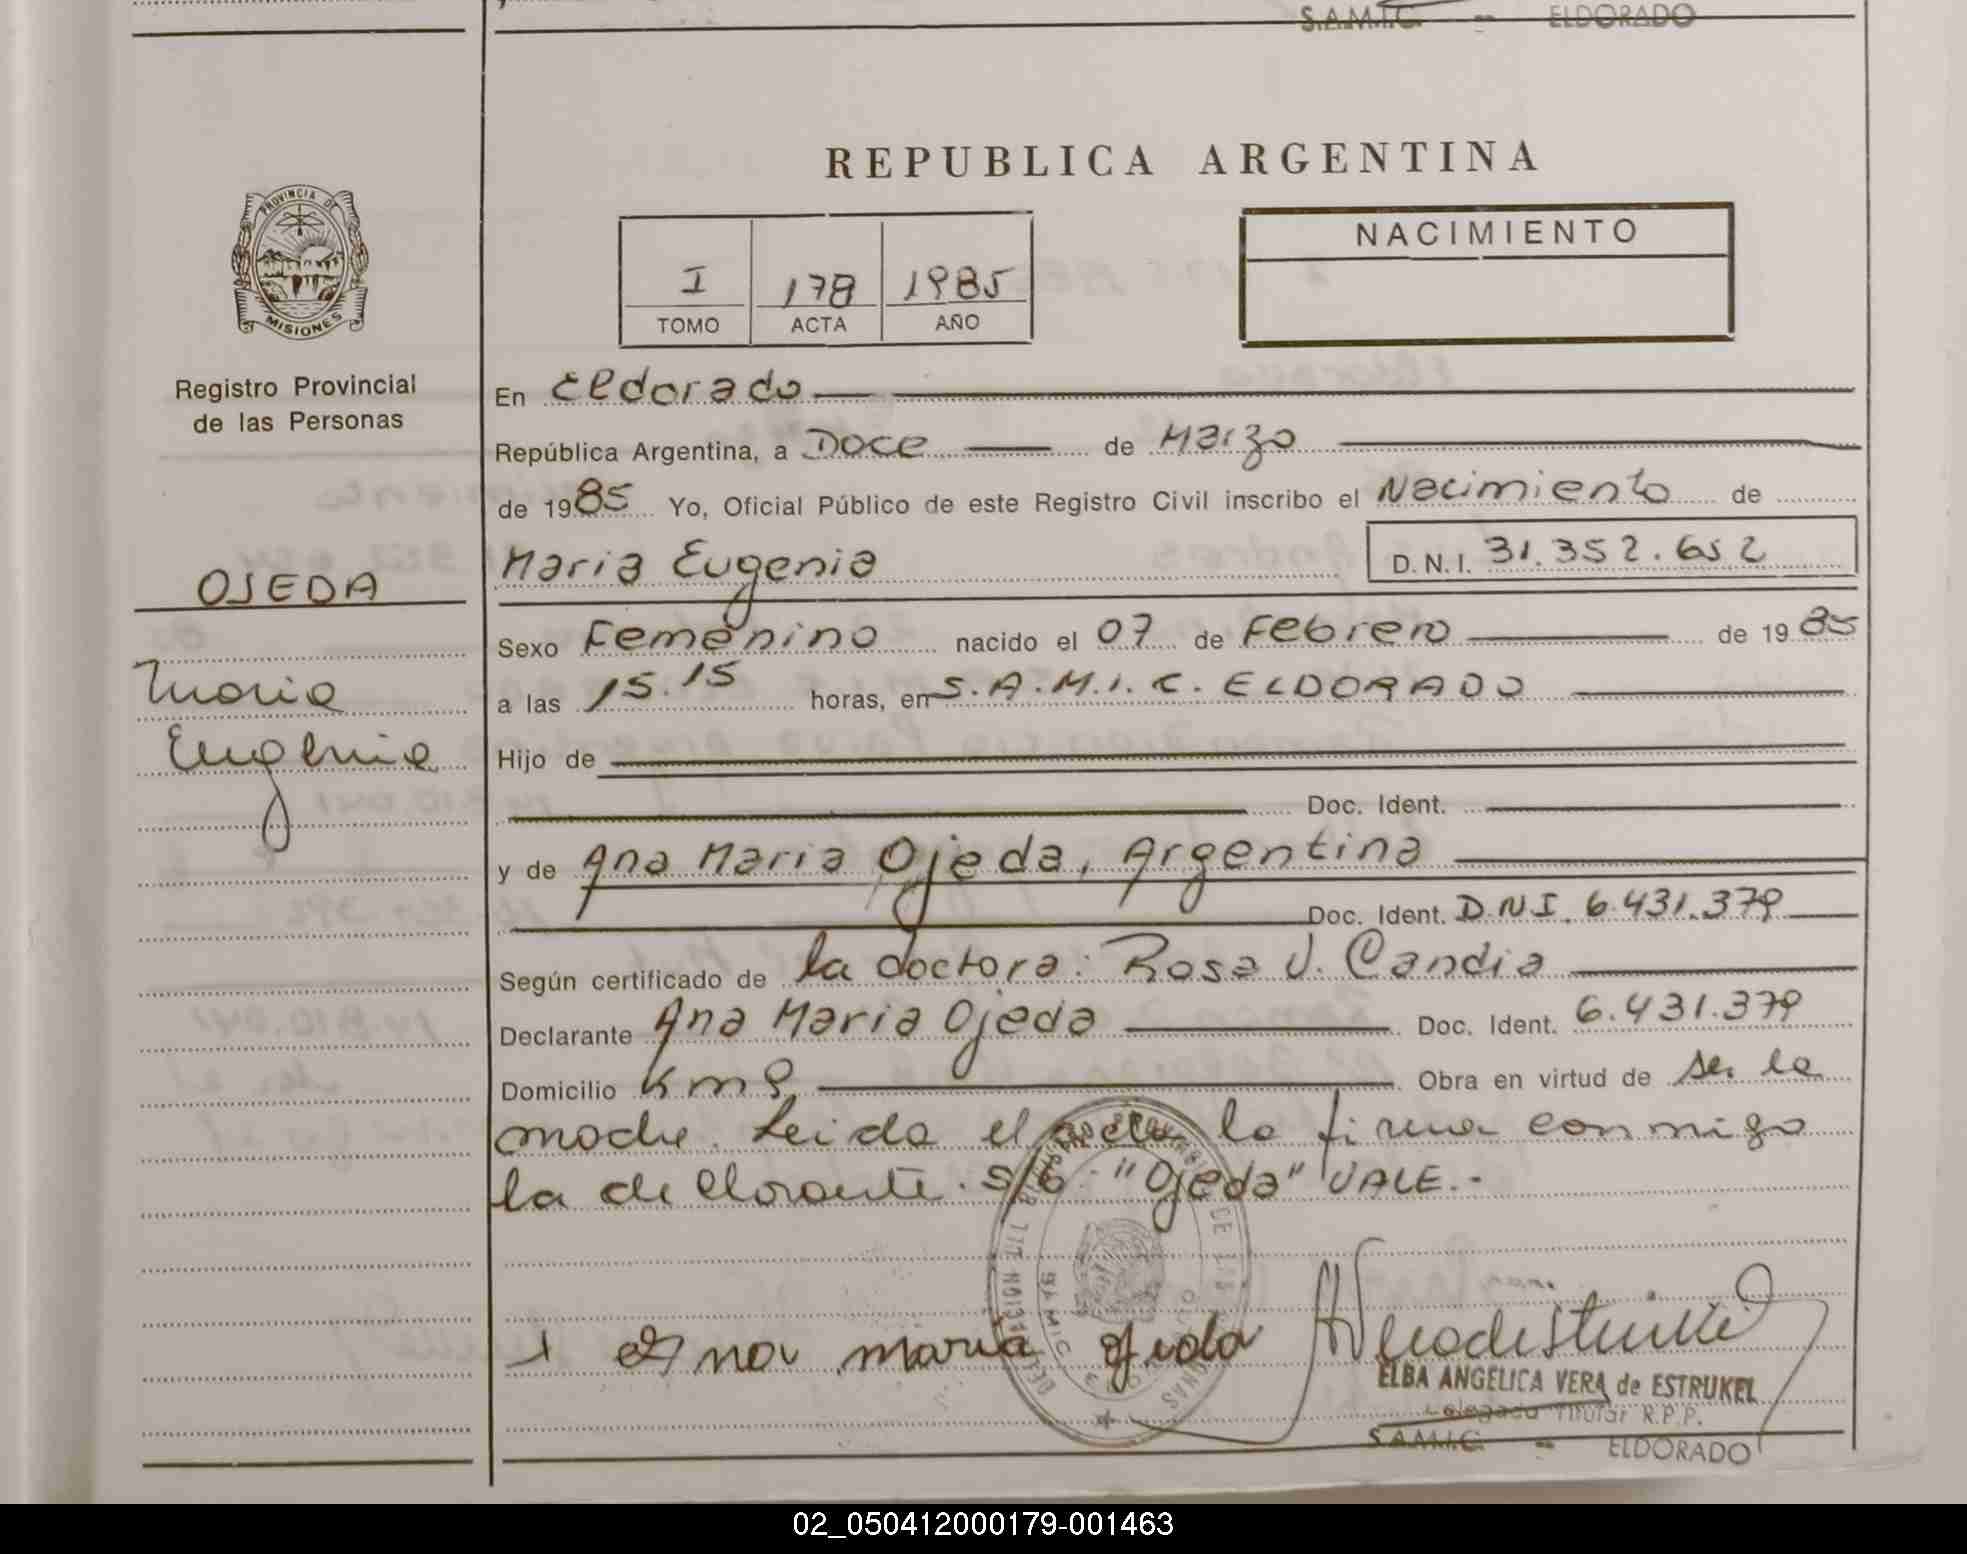 S.A.M.I.C. - ELDORADO
REPUBLICA ARGENTINA
PROVINCIA DE
MISIONES
I 178 1985
TOMO ACTA AÑO
NACIMIENTO
Registro Provincial
de las Personas
En Eldorado
República Argentina, a Doce de Marzo
de 1985 Yo, Oficial Público de este Registro Civil inscribo el Nacimiento de
OJEDA
Maria Eugenia D.N.I. 31.352.652
Sexo Femenino nacido el 07 de Febrero de 1985
Maria
Eugenia
a las 15.15 horas, en S.A.M.I.C. ELDORADO
Hijo de
Doc. Ident.
y de Ana Maria Ojeda, Argentina
Doc. Ident. D.N.I. 6.431.379
Según certificado de la doctora: Rosa V. Candia
Declarante Ana Maria Ojeda Doc. Ident. 6.431.379
Domicilio Km 9 Obra en virtud de ser la
madre. Leida el acta la firma conmigo
la declarante. S/b "Ojeda" VALE.-
Ana maria ojeda
ELBA ANGELICA VERA de ESTRUKEL
Delegada Titular R.P.P.
S.A.M.I.C. - ELDORADO
02_050412000179-001463